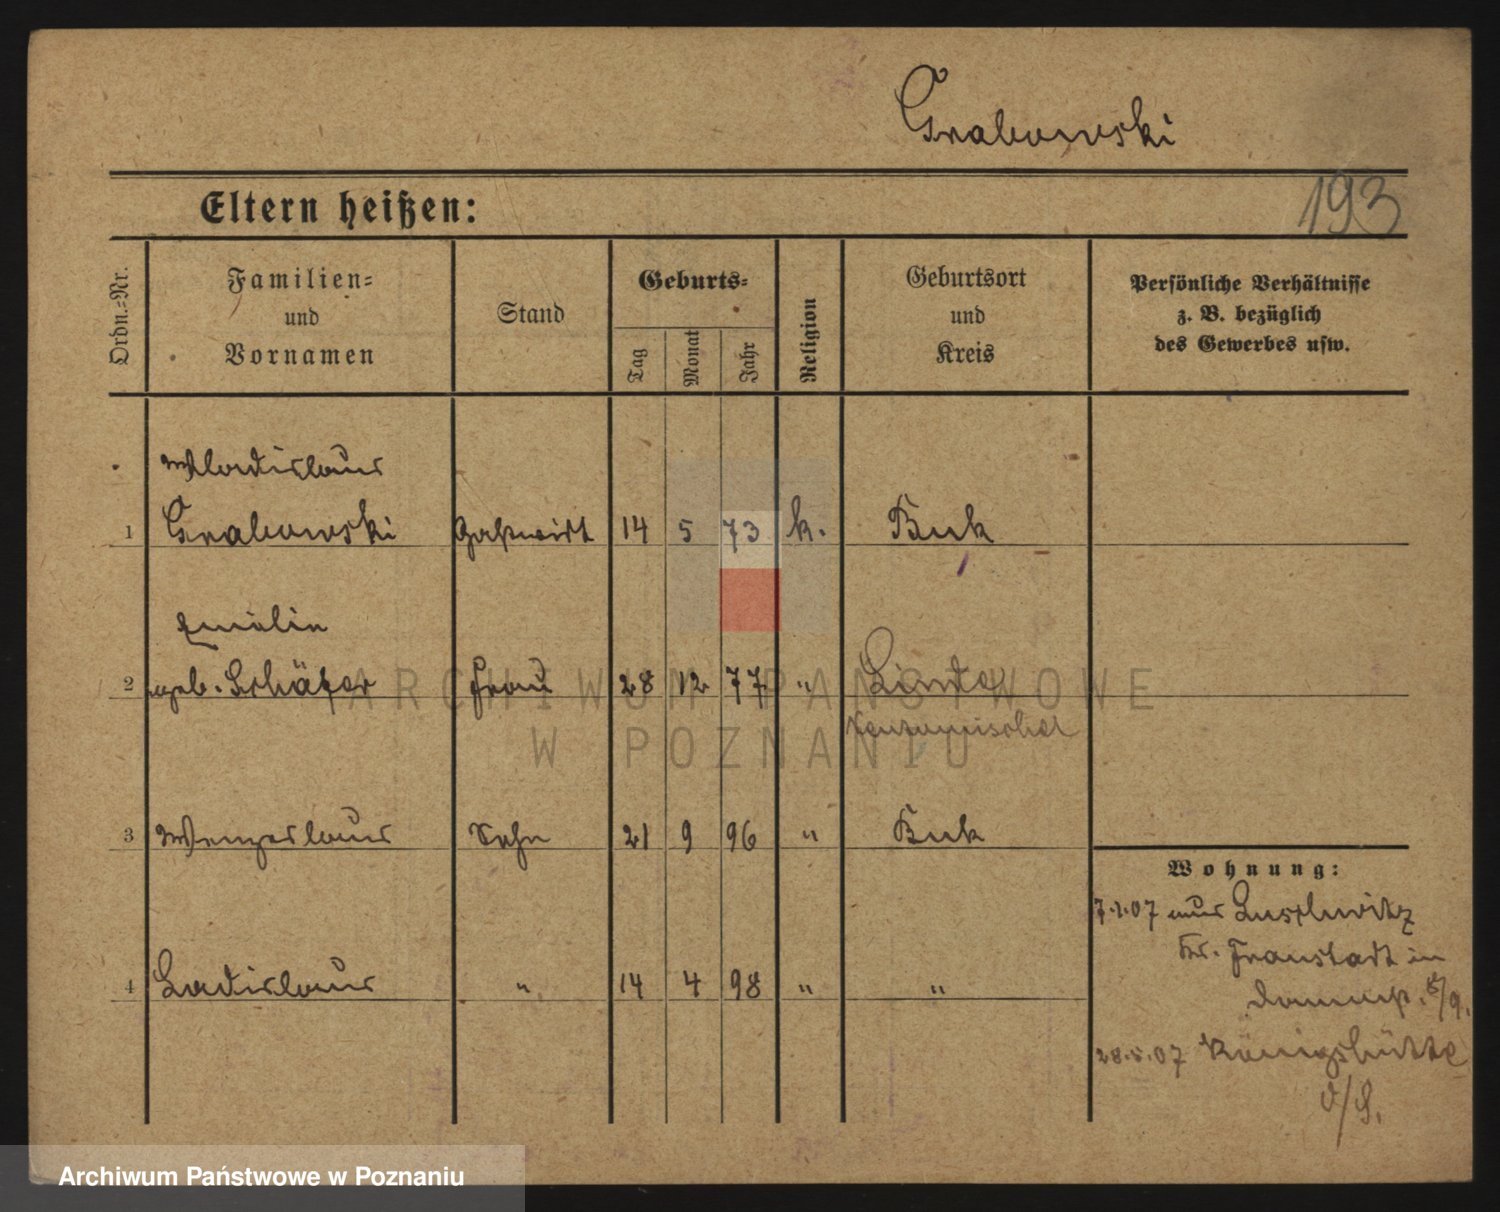 Grabowski
193
Eltern heißen:
Ordn.-Nr.
Familien-
und
Vornamen
Stand
Geburts-
Tag
Monat
Jahr
Religion
Geburtsort
und
Kreis
Persönliche Verhältnisse
z. B. bezüglich
des Gewerbes usw.
Wladislaus
1 Grabowski Gastwirt 14 5 73 k. Buk
Emilie
2 geb. Schäfer Frau 28 12 77 " Linde
3 Wenzeslaus Sohn 21 9 96 " Buk
4 Ladislaus " 14 4 98 " "
Wohnung:
7.1.07 aus Luschwitz
Kr. Fraustadt in
28.5.07 Königshütte
O/S.
ARCHIWUM PAŃSTWOWE
W POZNANIU
Archiwum Państwowe w Poznaniu